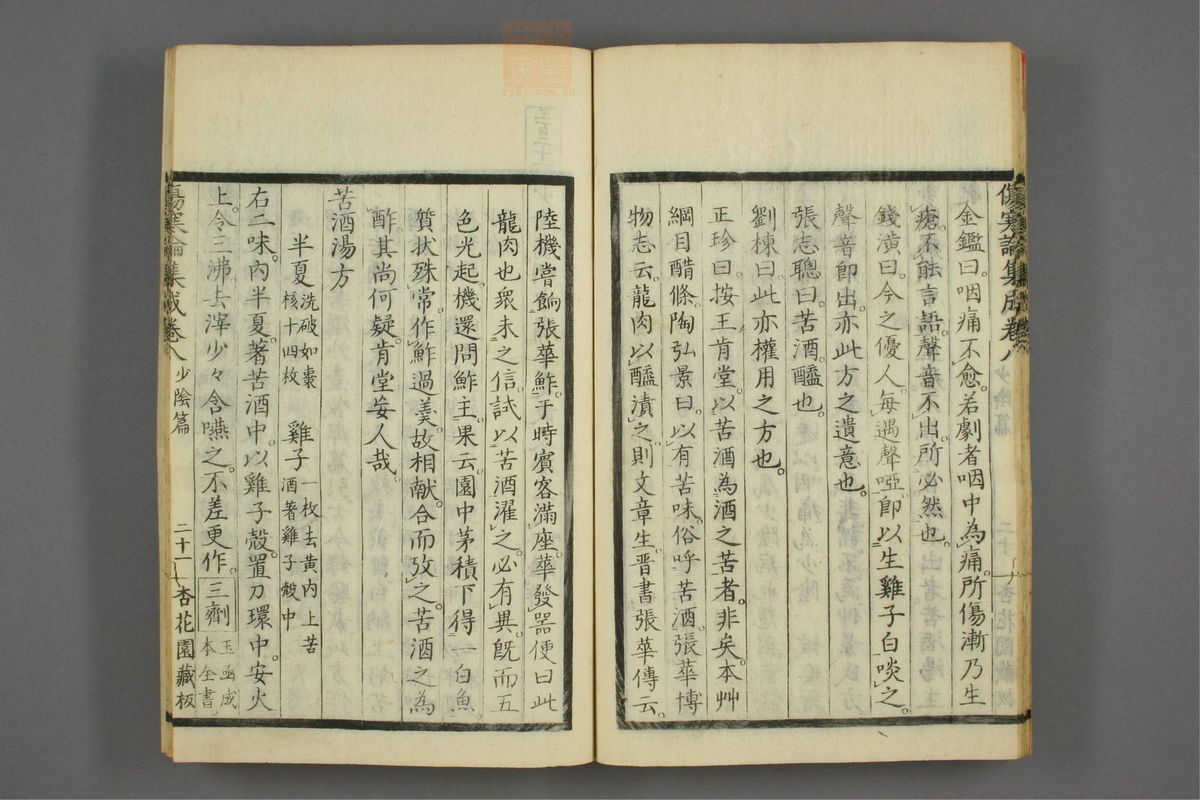 傷寒論集成卷八 少陰篇
金鑑曰。咽痛不愈。若劇者咽中為痛。所傷漸乃生
瘡。不能言語。聲音不出。所必然也。
錢潢曰。今之優人。每遇聲啞。即以生雞子白啖之。
聲音即出。亦此方之遺意也。
張志聰曰。苦酒。醯也。
劉棟曰。此亦權用之方也。
正珍曰。按王肯堂。以苦酒為酒之苦者。非矣。本艸
綱目醋條。陶弘景曰。以有苦味。俗呼苦酒。張華博
物志云。龍肉以醯漬之。則文章生。晋書張華傳云。
陸機嘗餉張華鮓。于時賓客滿座。華發器便曰。此
龍肉也。衆未之信。試以苦酒濯之。必有異。既而五
色光起。機還問鮓主。果云。園中茅積下得一白魚。
質状殊常。作鮓過美。故相献。合而攷之。苦酒之為
酢。其尚何疑。肯堂妄人哉。
苦酒湯方
半夏 洗破如棗核十四枚 雞子 一枚去黄内上苦酒著雞子殻中
右二味。内半夏。著苦酒中。以雞子殻。置刀環中。安火
上。令三沸。去滓。少々含嚥之。不差更作。三劑 玉函成本全書。
傷寒論集成卷八 少陰篇 二十一 杏花園藏板
zysj.com.cn